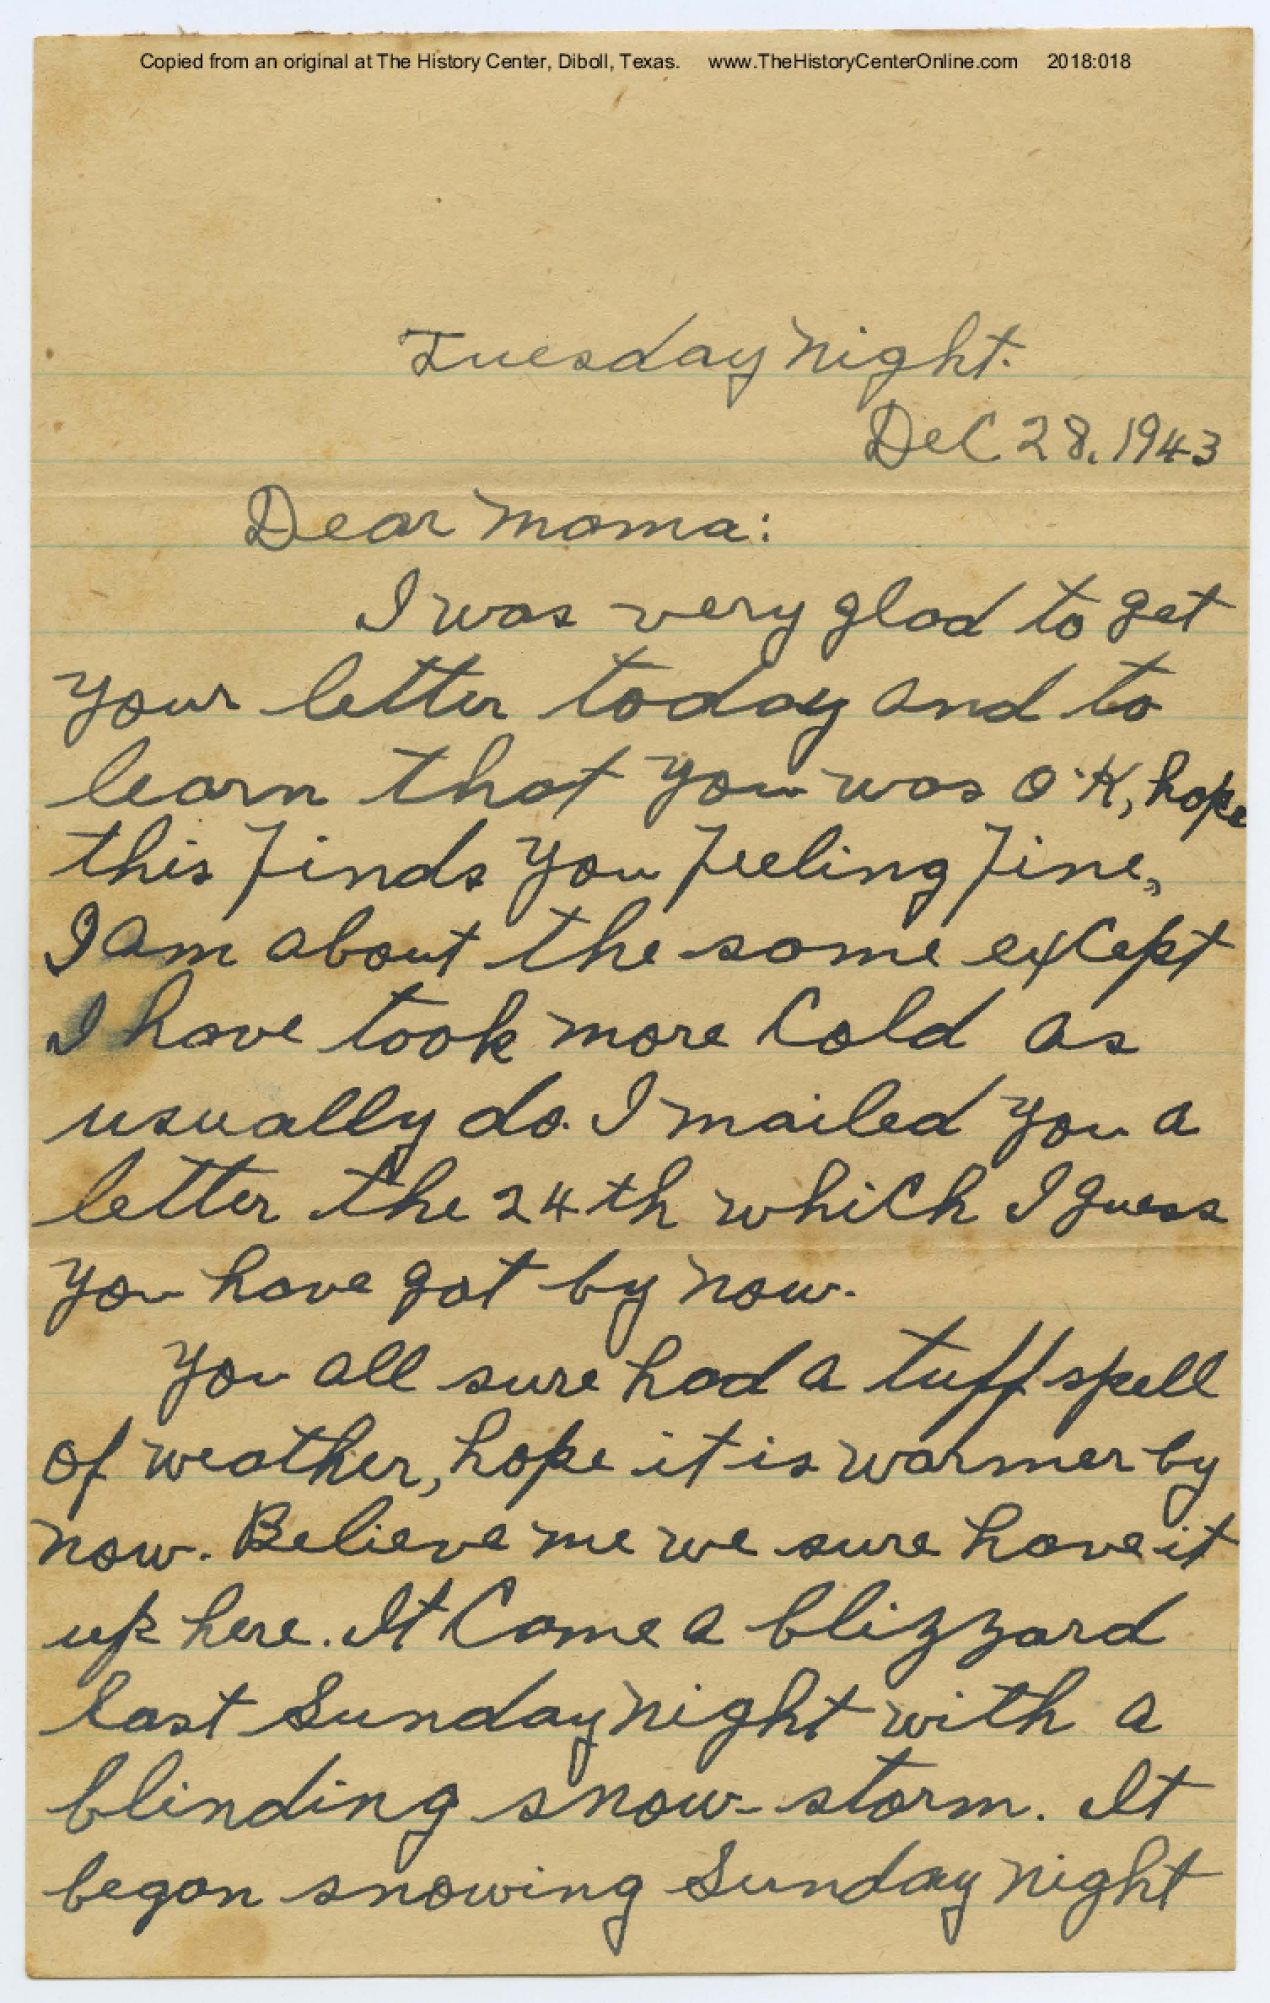 Copied from an original at The History Center, Diboll, Texas. www.TheHistoryCenterOnline.com 2018:018
Tuesday Night.
Dec 28, 1943
Dear Moma:
I was very glad to get
your letter today and to
learn that you was O.K, hope
this finds you feeling fine,
I am about the same except
I have took more Cold as
usually do. I mailed you a
letter the 24th which I guess
you have got by now.
You all sure had a tuff spell
of weather, hope it is warmer by
now. Believe me we sure have it
up here. It Come a blizzard
last Sunday night with a
blinding snow-storm. It
began snowing Sunday night